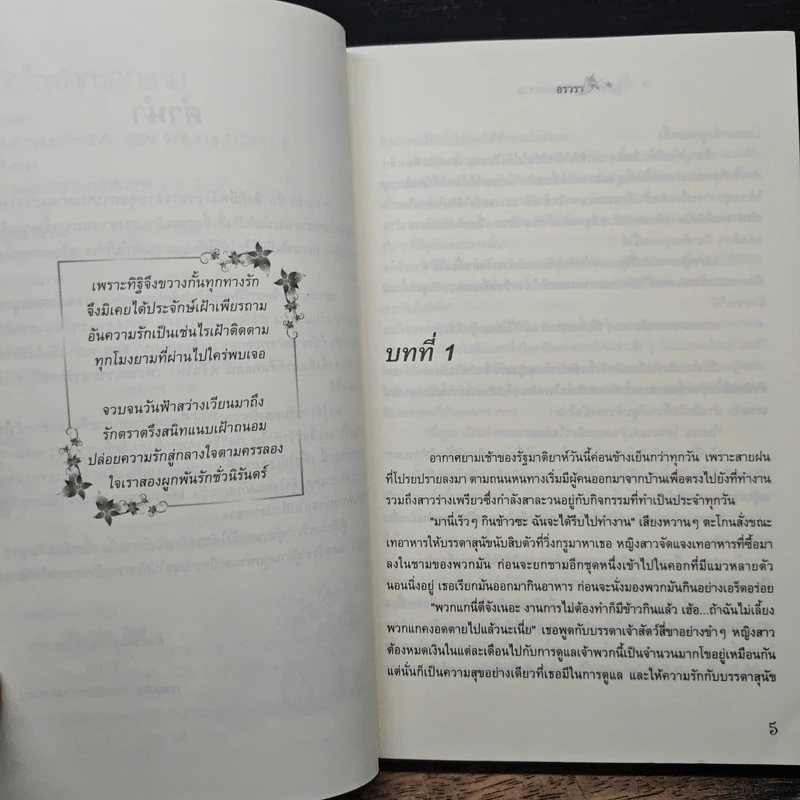 เพราะทิฐิจึงขวางกั้นทุกทางรัก
จึงมิเคยได้ประจักษ์เฝ้าเพียรถาม
อันความรักเป็นเช่นไรเฝ้าติดตาม
ทุกโมงยามที่ผ่านไปใคร่พบเจอ
จวบจนวันฟ้าสว่างเวียนมาถึง
รักตราตรึงสนิทแนบเฝ้าถนอม
ปล่อยความรักสู่กลางใจตามครรลอง
ใจเราสองผูกพันรักชั่วนิรันดร์
อรวรา
บทที่ 1
อากาศยามเช้าของรัฐมาติยาห์วันนี้ค่อนข้างเย็นกว่าทุกวัน เพราะสายฝน
ที่โปรยปรายลงมา ตามถนนหนทางเริ่มมีผู้คนออกมาจากบ้านเพื่อตรงไปยังที่ทำงาน
รวมถึงสาวร่างเพรียวซึ่งกำลังสาละวนอยู่กับกิจกรรมที่ทำเป็นประจำทุกวัน
"มานี่เร็วๆ กินข้าวซะ ฉันจะได้รีบไปทำงาน" เสียงหวานๆ ตะโกนสั่งขณะ
เทอาหารให้บรรดาสุนัขนับสิบตัวที่วิ่งกรูมาหาเธอ หญิงสาวจัดแจงเทอาหารที่ซื้อมา
ลงในชามของพวกมัน ก่อนจะยกชามอีกชุดหนึ่งเข้าไปในคอกที่มีแมวหลายตัว
นอนนิ่งอยู่ เธอเรียกมันออกมากินอาหาร ก่อนจะนั่งมองพวกมันกินอย่างเอร็ดอร่อย
"พวกแกนี่ดีจังเนอะ งานการไม่ต้องทำก็มีข้าวกินแล้ว เฮ้อ...ถ้าฉันไม่เลี้ยง
พวกแกคงอดตายไปแล้วนะเนี่ย" เธอพูดกับบรรดาเจ้าสัตว์สี่ขาอย่างขำๆ หญิงสาว
ต้องหมดเงินในแต่ละเดือนไปกับการดูแลเจ้าพวกนี้เป็นจำนวนมากโขอยู่เหมือนกัน
แต่นั่นก็เป็นความสุขอย่างเดียวที่เธอมีในการดูแล และให้ความรักกับบรรดาสุนัข
5